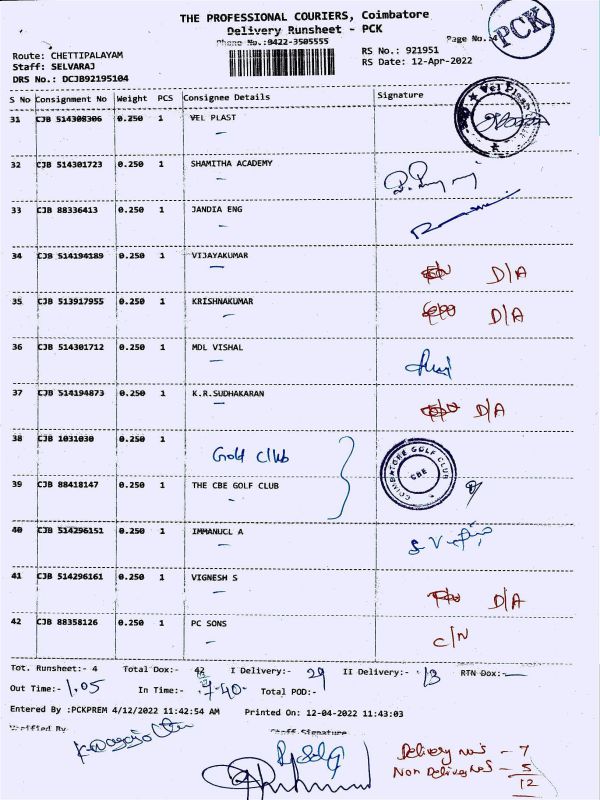 THE PROFESSIONAL COURIERS, Coimbatore
Delivery Runsheet - PCK
Phone No.:0422-3505555
Page No.
PCK
Route: CHETTIPALAYAM
RS No.: 921951
Staff: SELVARAJ
RS Date: 12-Apr-2022
DRS No.: DCJB92195104
S No Consignment No Weight PCS Consignee Details Signature
31 CJB 514308306 0.250 1 VEL PLAST
Vel Plast
32 CJB 514301723 0.250 1 SHAMITHA ACADEMY
33 CJB 88336413 0.250 1 JANDIA ENG
34 CJB 514194189 0.250 1 VIJAYAKUMAR D/A
35 CJB 513917955 0.250 1 KRISHNAKUMAR D/A
36 CJB 514301712 0.250 1 MDL VISHAL
37 CJB 514194873 0.250 1 K.R.SUDHAKARAN D/A
38 CJB 1031030 0.250 1 Gold Club
COIMBATORE GOLF CLUB
CBE
39 CJB 88418147 0.250 1 THE CBE GOLF CLUB
40 CJB 514296151 0.250 1 IMMANUCL A
41 CJB 514296161 0.250 1 VIGNESH S D/A
42 CJB 88358126 0.250 1 PC SONS C/N
Tot. Runsheet:- 4 Total Dox:- 42 I Delivery:- 29 II Delivery:- 13 RTN Dox:-
Out Time:- 1.05 In Time:- 7.40 Total POD:-
Entered By :PCKPREM 4/12/2022 11:42:54 AM Printed On: 12-04-2022 11:43:03
Verified By Staff Signature
Delivery No's - 7
Non Delivery No's - 5
12